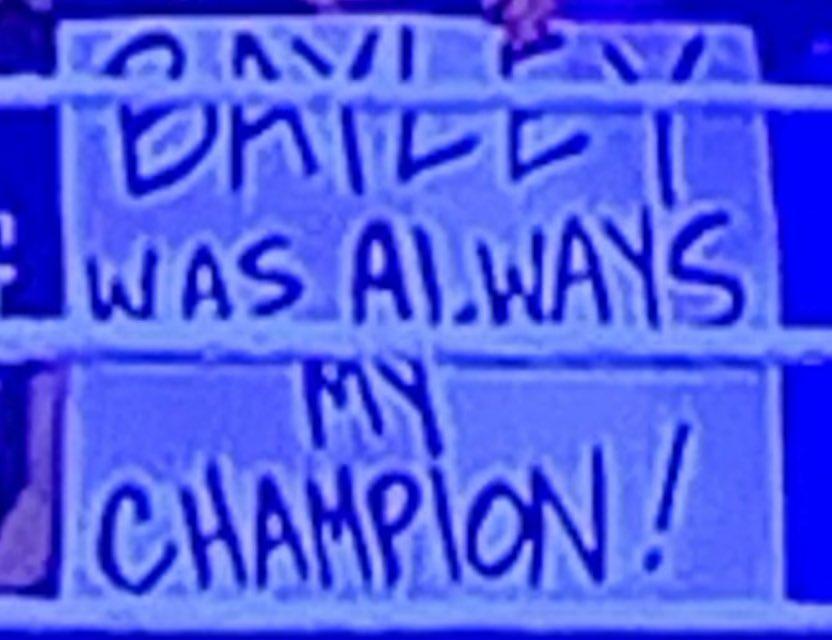 BAYLEY
WAS ALWAYS
MY
CHAMPION!